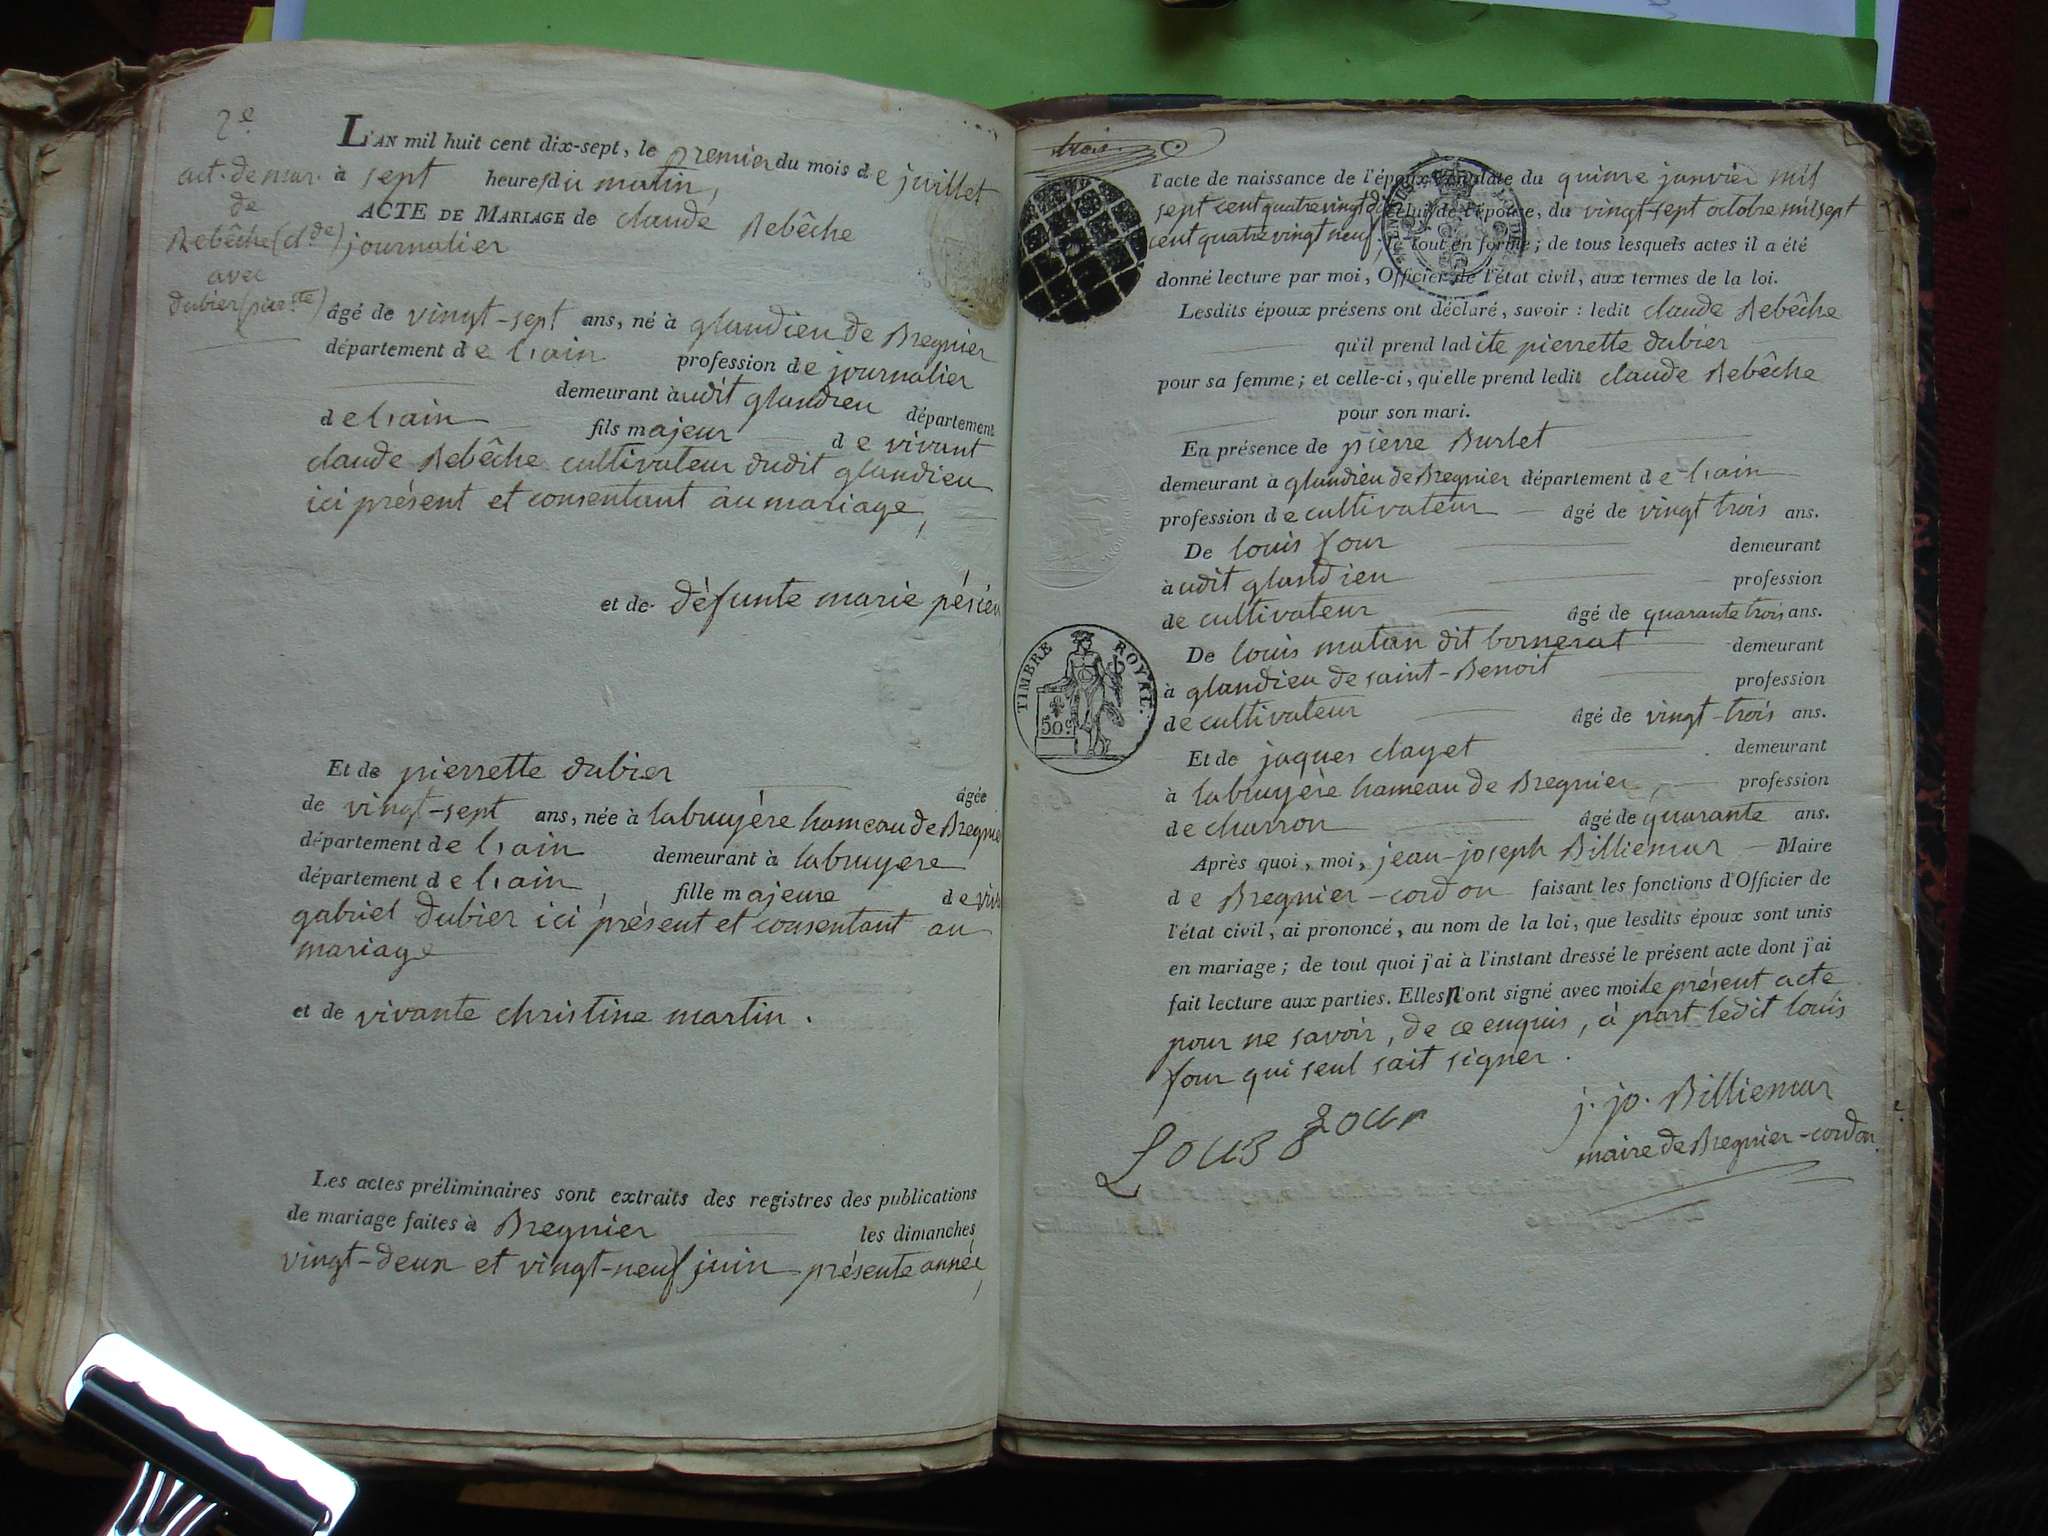 2e
act. de mar.
de
Rebêche (Cde)
avec
dubier (pierrte)
L'AN mil huit cent dix-sept, le premier du mois de juillet
à sept heures du matin,
ACTE DE MARIAGE de claude Rebêche
journalier
âgé de vingt-sept ans, né à glandieu de Bregnier
département de l'ain profession de journalier
demeurant àudit glandieu département
de l'ain fils majeur de vivant
claude Rebêche cultivateur dudit glandieu
ici présent et consentant au mariage,
et de défunte marie pésieu
Et de pierrette dubier âgée
de vingt-sept ans, née à labruyère hameau de Bregnie
département de l'ain demeurant à labruyere
département de l'ain, fille majeure de viv
gabriel dubier ici présent et consentant au
mariage
et de vivante christine martin.
Les actes préliminaires sont extraits des registres des publications
de mariage faites à Bregnier les dimanches
vingt-deux et vingt-neuf juin présente année,
trois
l'acte de naissance de l'époux, en date du quinze janvier mil
sept cent quatre vingt celui de l'épouse, du vingt-sept octobre mil sept
cent quatre vingt neuf, le tout en forme; de tous lesquels actes il a été
donné lecture par moi, Officier de l'état civil, aux termes de la loi.
Lesdits époux présens ont déclaré, savoir : ledit claude Rebêche
qu'il prend ladite pierrette dubier
pour sa femme; et celle-ci, qu'elle prend ledit claude Rebêche
pour son mari.
En présence de pierre Burlet
demeurant à glandieu de Bregnier département de l'ain
profession de cultivateur âgé de vingt trois ans.
De louis four demeurant
àudit glandieu profession
de cultivateur âgé de quarante trois ans.
De louis matan dit bornerat demeurant
à glandieu de saint-Benoit profession
de cultivateur âgé de vingt-trois ans.
TIMBRE ROYAL.
50c
Et de jaques clayet demeurant
à labruyère hameau de Bregnier, profession
de charron âgé de quarante ans.
Après quoi, moi, jean-joseph Billiemar Maire
de Bregnier-cordon faisant les fonctions d'Officier de
l'état civil, ai prononcé, au nom de la loi, que lesdits époux sont unis
en mariage; de tout quoi j'ai à l'instant dressé le présent acte dont j'ai
fait lecture aux parties. Elles n'ont signé avec moi le présent acte
pour ne savoir, de ce enquis, à part ledit louis
four qui seul sait signer.
j. jo. Billiemar
maire de Bregnier-cordon.